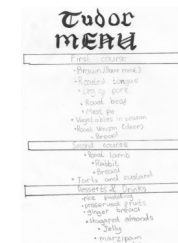 Tudor
MENU
First course
• Brawn
• Roasted tongue
• Leg of pork
• Roast beef
• Meat pie
• Vegetables in season
• Roast venison (deer)
• Bread
Second course
• Roast lamb
• Rabbit
• Bread
• Tarts and custard
Desserts & Drinks
rice pudding
• preserved fruits
• ginger bread
• sugared almonds
• Jelly
• marzipan